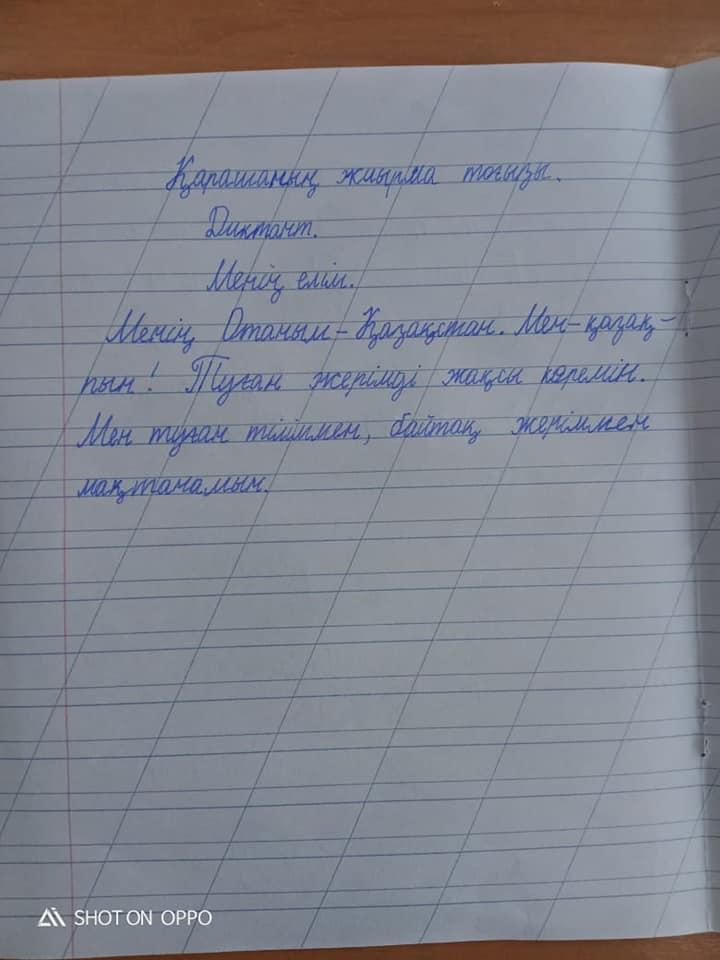 Қарашаның жиырма тоғызы.
Диктант.
Менің елім.
Менің Отаным - Қазақстан. Мен - қазақ-
пын! Туған жерімді жақсы көремін.
Мен туған тіліммен, байтақ жеріммен
мақтанамын.
SHOT ON OPPO